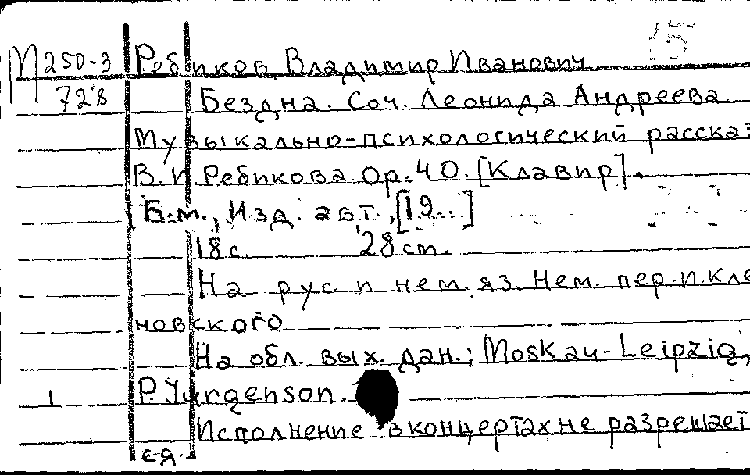 М250-3 Ребиков, Владимир Иванович
728 Бездна. Соч. Леонида Андреева
Музыкально-психологический рассказ
В.И. Ребикова Op. 40. [Клавир].
Б.м., Изд. авт., [19..]
18 с. 28 cm.
На рус. и нем. яз. Нем. пер. И. Кле
новского
На обл. вых. дан.: Moskau-Leipzig,
1 P. Jurgenson.
Исполнение в концертах не разрешает
ся.